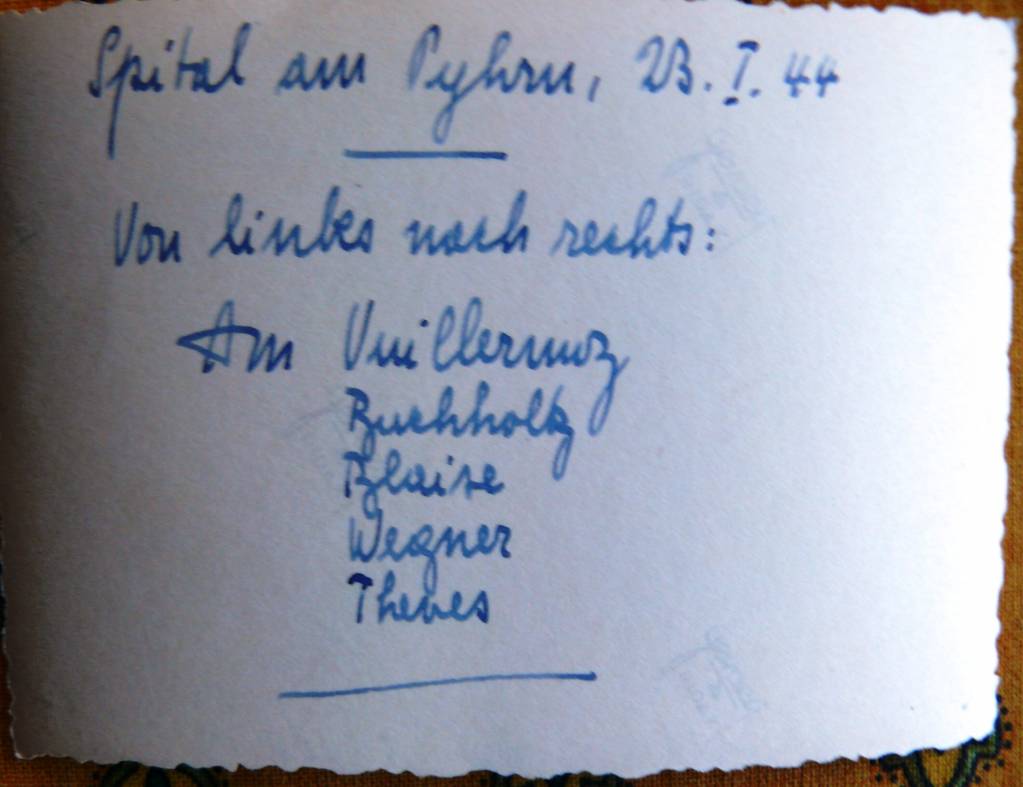 Spital am Pyhrn, 23. I. 44
Von links nach rechts:
Am Vuillermoz
Buchholtz
Blaise
Wegner
Theves